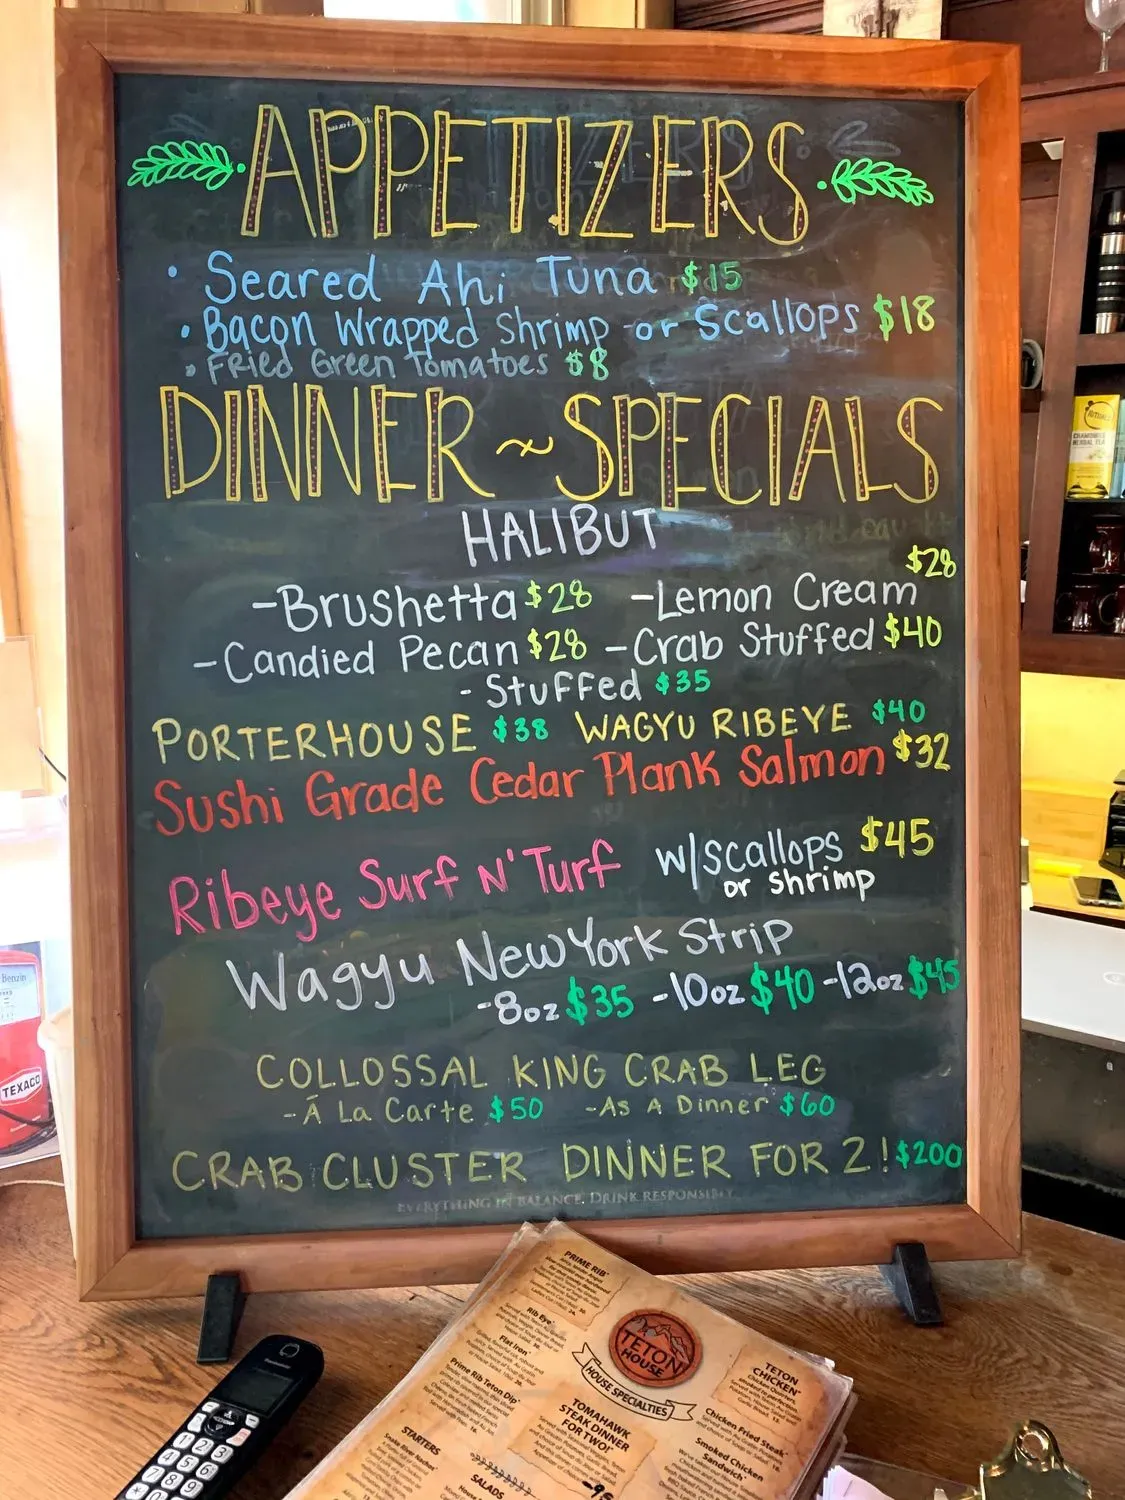 APPETIZERS
• Seared Ahi Tuna $15
• Bacon Wrapped Shrimp or Scallops $18
• Fried Green Tomatoes $8
DINNER ~ SPECIALS
HALIBUT
- Brushetta $28 - Lemon Cream $28
- Candied Pecan $28 - Crab Stuffed $40
- Stuffed $35
PORTERHOUSE $38 WAGYU RIBEYE $40
Sushi Grade Cedar Plank Salmon $32
Ribeye Surf N' Turf w/scallops $45
or shrimp
Wagyu New York Strip
- 8oz $35 - 10oz $40 - 12oz $45
COLLOSSAL KING CRAB LEG
- Á La Carte $50 - As A Dinner $60
CRAB CLUSTER DINNER FOR 2! $200
EVERYTHING IN BALANCE. DRINK RESPONSIBLY.
PRIME RIB
Rib Eye
Flat Iron
Prime Rib Teton Dip
STARTERS
Snake River Nachos
SALADS
TETON
HOUSE
HOUSE SPECIALTIES
TOMAHAWK
STEAK DINNER
FOR TWO!
TETON
CHICKEN
Chicken Fried Steak
Smoked Chicken
Sandwich
Benzin
TEXACO
Panasonic